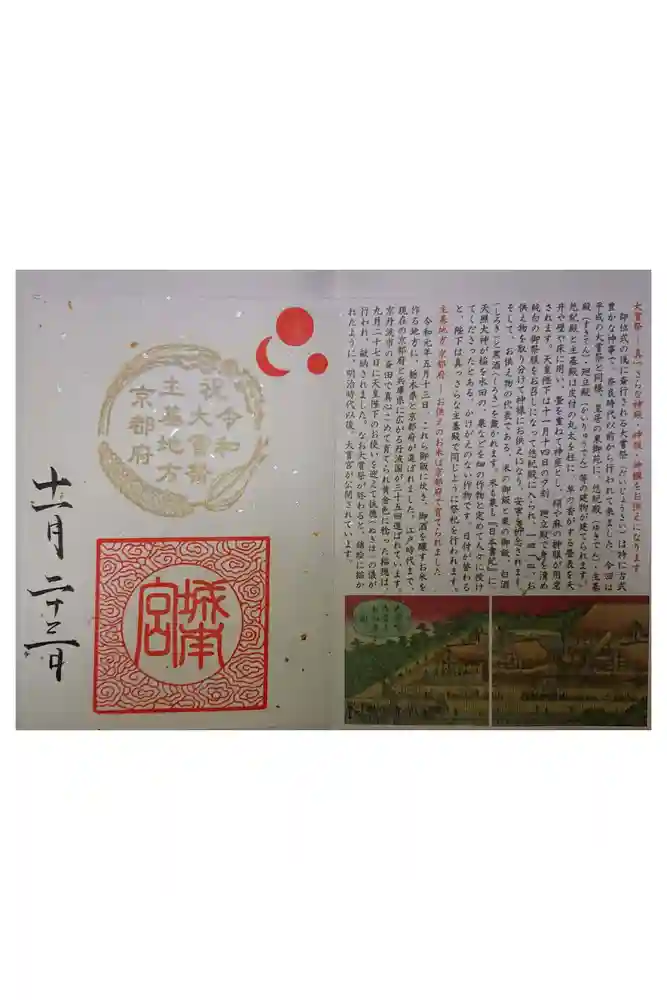 大嘗祭 ― 真っさらな神殿・神服・神饌をお供えになります
御位式の後に斎行される大嘗祭（だいじょうさい）は特に古式
豊かな神事で、奈良時代以前から行われて来ました。今回は
平成の大嘗祭と同様、皇居の東御苑に、悠紀殿（ゆきでん）・主基
殿（すきでん）・廻立殿（かいりゅうでん）等の建物が建てられます。
悠紀殿と主基殿は皮付の丸太を柱に、草の香がする畳表を天
井や壁や床に用い、畳を重ねて神座とし、絹や麻の神服が用意
されます。天皇陛下は十一月十四日の夕刻、廻立殿で身を清め
純白の御祭服をお召しになって悠紀殿に入られ、一回一回、お
供え物を取り分けて神様にお供えになり、安寧を祈念されます。
そして、お供え物の代表である、米の御飯と粟の御飯、白酒
（しろき）と黒酒（くろき）を戴かれます。米も粟も『日本書紀』に
天照大神が稲を水田の、粟などを畑の作物と定めて人々に授け
てくださったとある、かけがえのない作物です。日付が替わる
と、陛下は真っさらな主基殿で同じように祭祀を行われます。
主基地方 京都府 ― お供えのお米は京都府で育てられました
令和元年五月十三日、これら御飯に炊き、御酒を醸すお米を
作る地方に、栃木県と京都府が選ばれました。江戸時代まで、
現在の京都府と兵庫県に広がる丹波国が三十五回選ばれています。
京丹波市の斎田で真心こめて育てられ黄金色に稔った稲穂は、
九月二十七日に天皇陛下のお使いを迎えて抜穂（ぬきほ）の儀が
行われ、献納されました。なお大嘗祭が終わると、錦絵に描か
れたように、明治時代以後、大嘗宮が公開されています。
祝令和
大嘗祭
主基地方
京都府
城南
宮
十一月二十三日